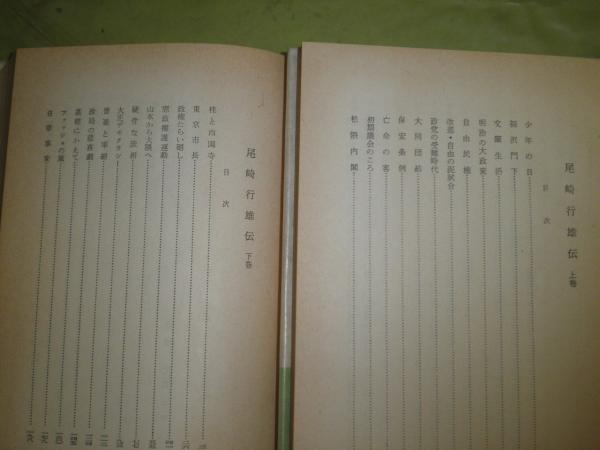 尾崎行雄伝 上巻
目次
少年の日
福沢門下
文墨生活
明治の大政変
自由民権
改進・自由の泥試合
政党の受難時代
大同団結
保安条例
亡命の客
初期議会のころ
松隈内閣
尾崎行雄伝 下巻
目次
桂と西園寺
東京市長
政権たらい廻し
憲政擁護運動
山本から大隈へ
硬骨な法相
大正デモクラシー
普選と軍縮
政局の悲喜劇
墓標にかえて
ファッショの嵐